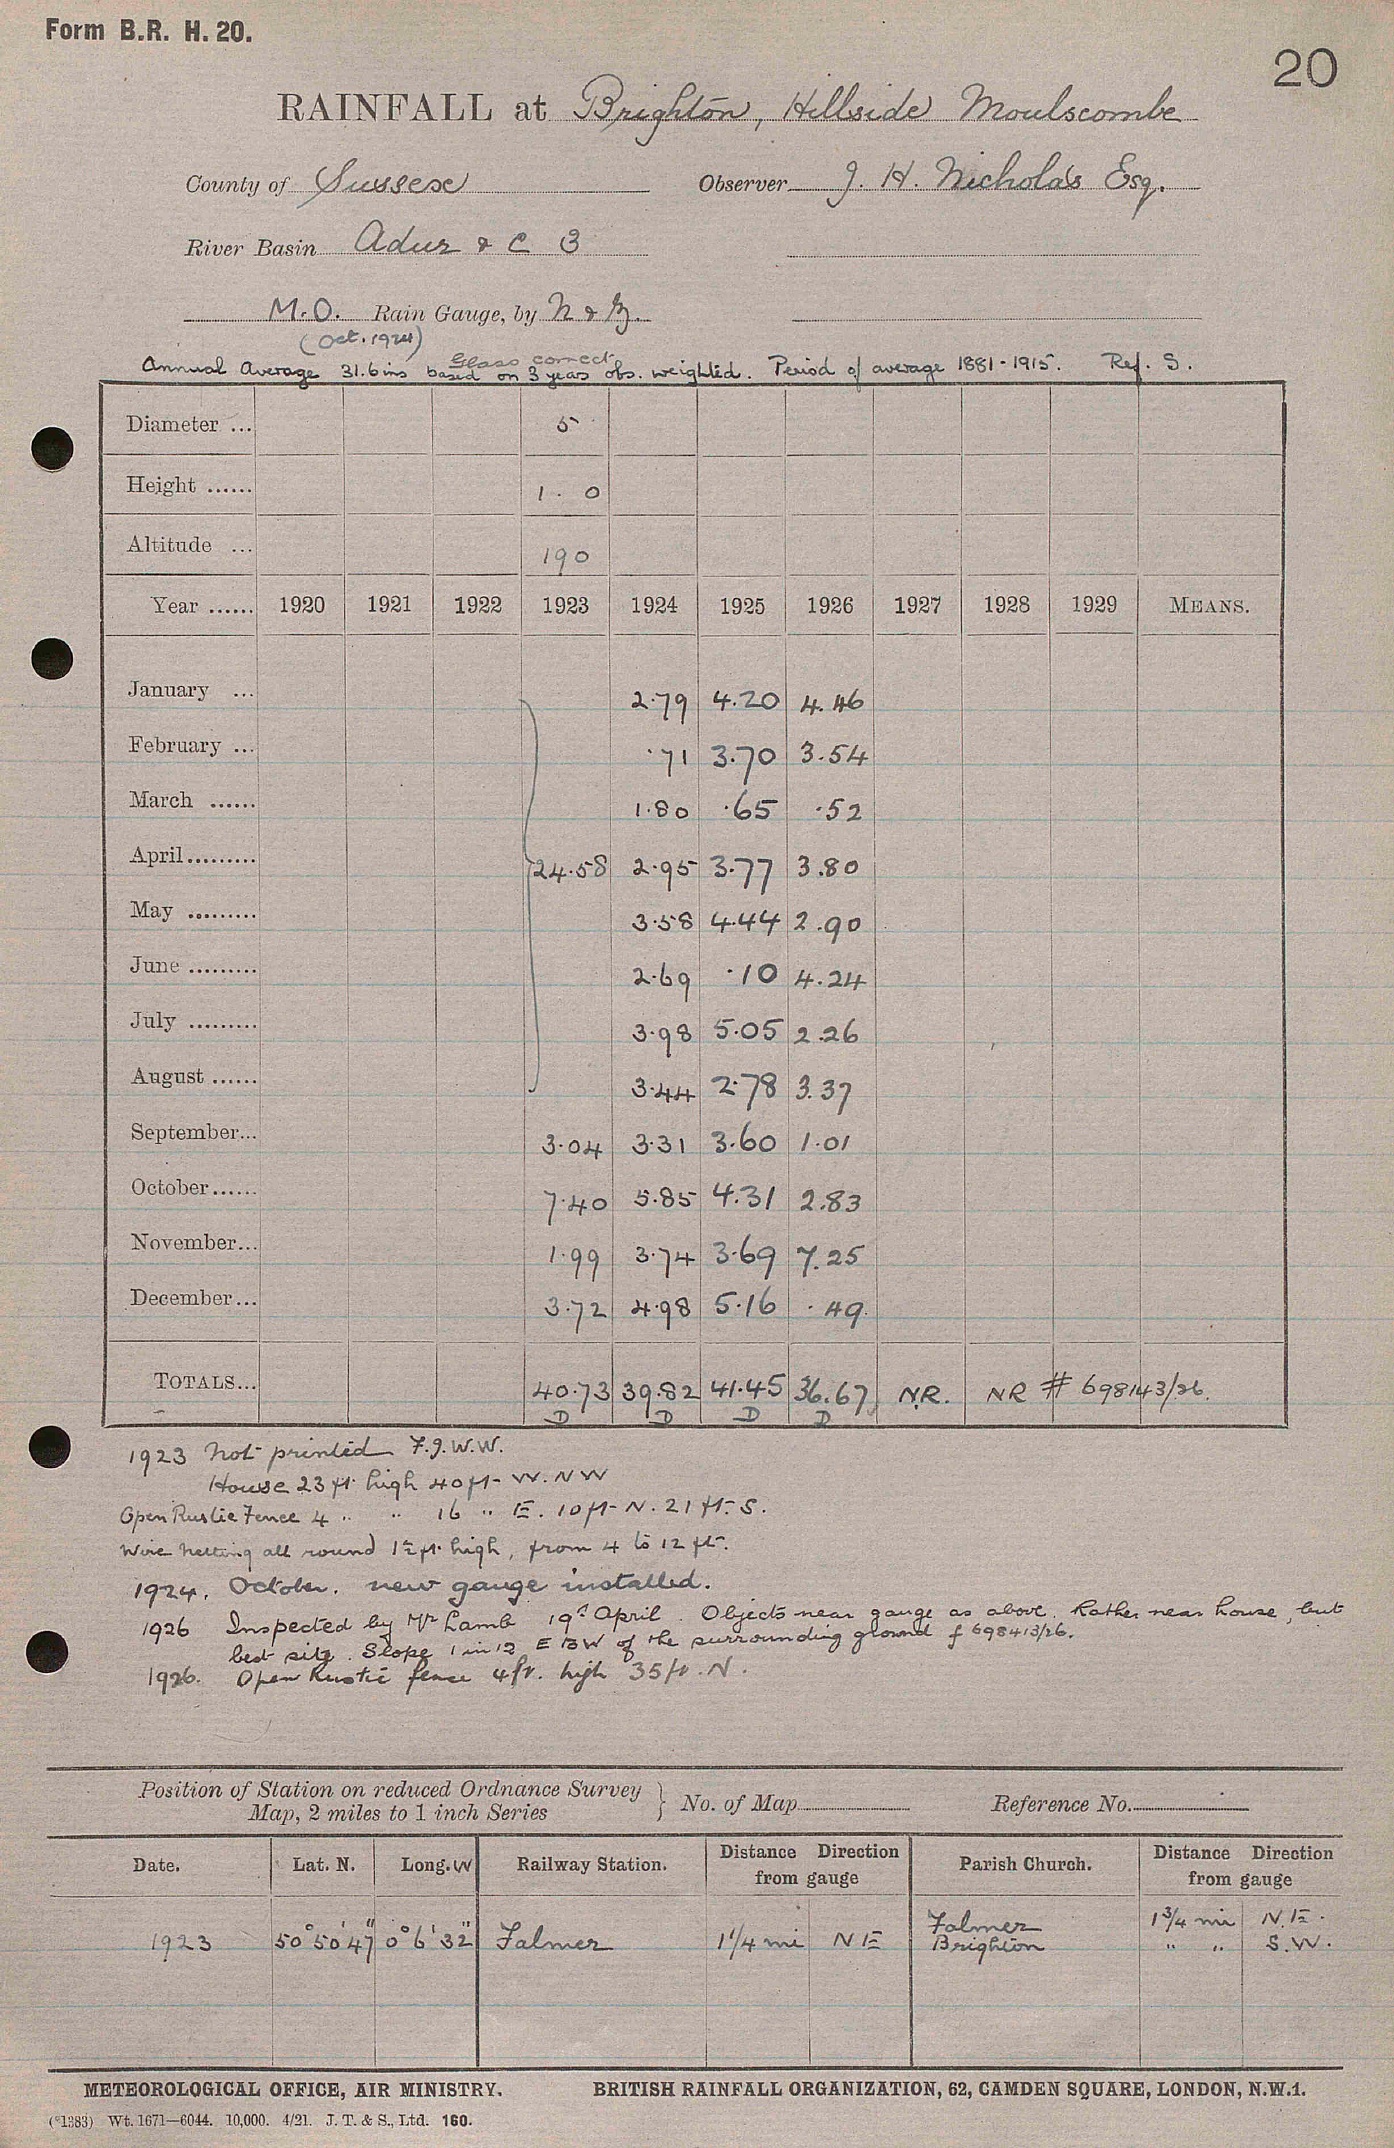 Form B.R. H. 20.
20
RAINFALL at Brighton, Hillside Moulscombe
County of Sussex Observer J. H. Nicholas Esq.
River Basin Adur & C 3
M.O. Rain Gauge, by N & Z.
(Oct. 1924)
Glass correct
Annual Average 31.6 ins based on 3 years obs. weighted. Period of average 1881-1915. Ref. S.
Diameter ... 5
Height ...... 1. 0
Altitude ... 190
Year ...... 1920 1921 1922 1923 1924 1925 1926 1927 1928 1929 MEANS.
January ... 2.79 4.20 4.46
February ... .71 3.70 3.54
March ...... 1.80 .65 .52
April......... 24.58 2.95 3.77 3.80
May ......... 3.58 4.44 2.90
June ......... 2.69 .10 4.24
July ......... 3.98 5.05 2.26
August ...... 3.44 2.78 3.37
September... 3.04 3.31 3.60 1.01
October...... 7.40 5.85 4.31 2.83
November... 1.99 3.74 3.69 7.25
December... 3.72 4.98 5.16 .49
TOTALS... 40.73 39.82 41.45 36.67 N.R. NR # 698143/26.
D D D D
1923 Not printed F.J.W.W.
House 23 ft. high 40 ft W. NW
Open Rustic Fence 4 " " 16 " E. 10 ft N. 21 ft. S.
Wire netting all round 1½ ft. high, from 4 to 12 ft.
1924. October. new gauge installed.
1926 Inspected by Mr Lamb 19th April. Objects near gauge as above. Rather near house, but
best site. Slope 1 in 12 E BW of the surrounding ground f 698413/26.
1926. Open Rustic fence 4 ft. high 35 ft. N.
Position of Station on reduced Ordnance Survey
Map, 2 miles to 1 inch Series } No. of Map Reference No.
Date. Lat. N. Long. W Railway Station. Distance Direction from gauge Parish Church. Distance Direction from gauge
1923 50° 50' 47" 0° 6' 32" Falmer 1¼ mi NE Falmer 1¾ mi N.E.
Brighton " " S.W.
METEOROLOGICAL OFFICE, AIR MINISTRY. BRITISH RAINFALL ORGANIZATION, 62, CAMDEN SQUARE, LONDON, N.W.1.
(*1383) Wt. 1671—6044. 10,000. 4/21. J. T. & S., Ltd. 160.